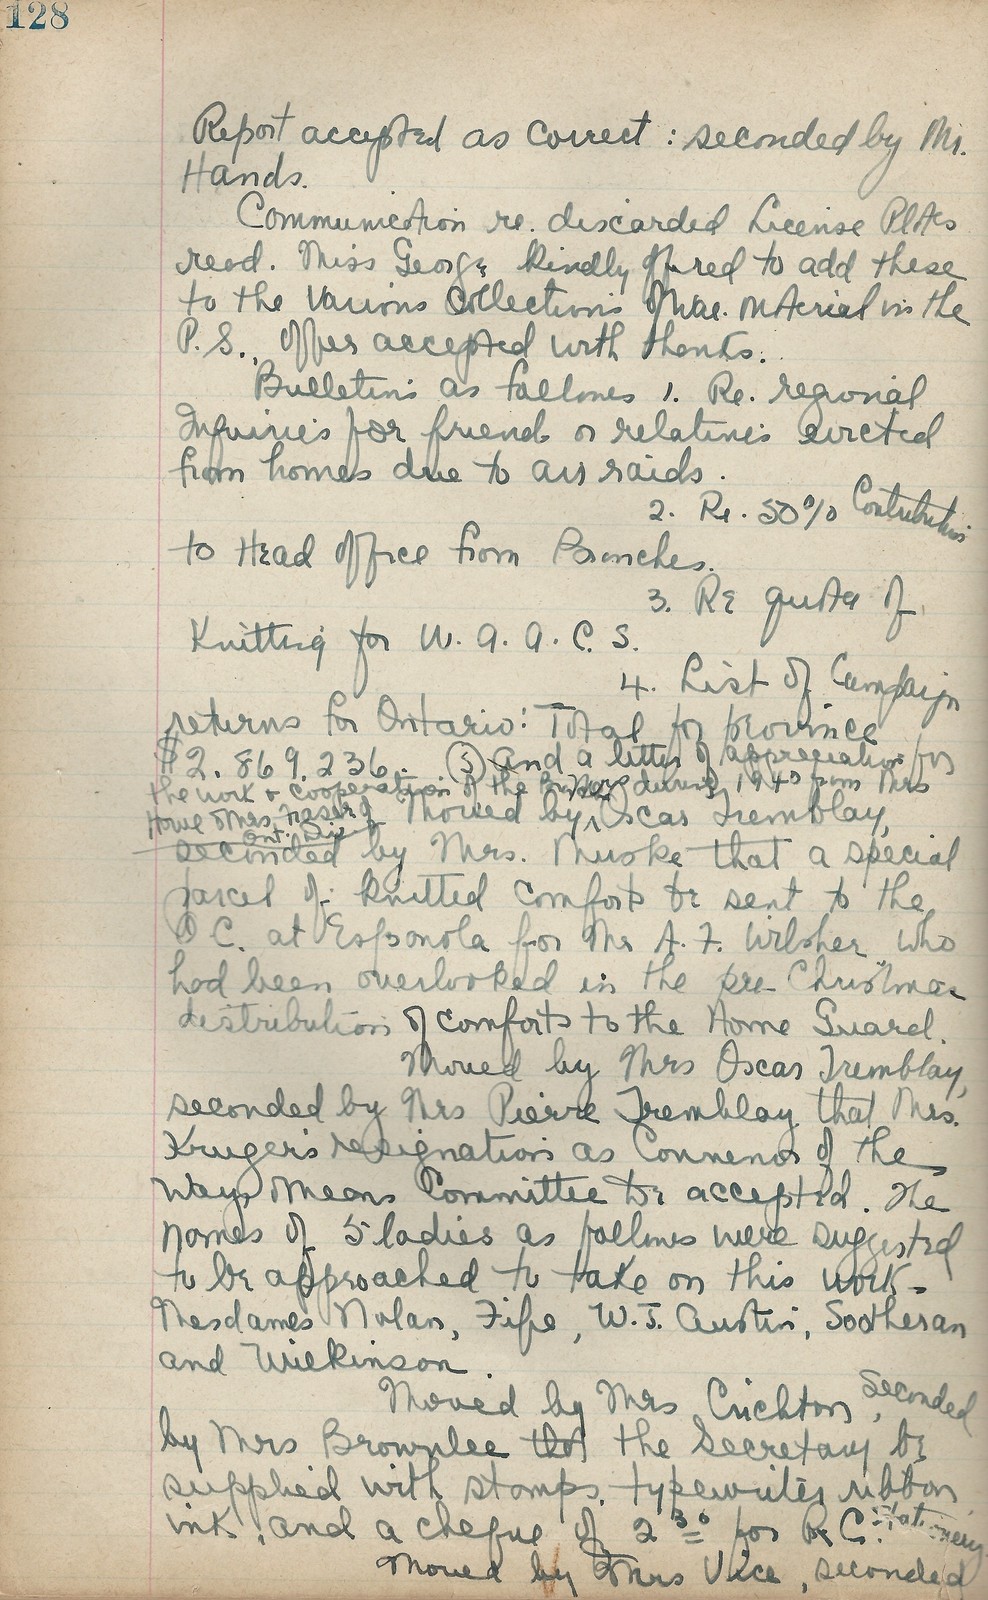 128
Report accepted as correct : seconded by Mr.
Hands.
Communication re. discarded License Plates
read. Miss George kindly offered to add these
to the various collections of war material in the
P. S., offer accepted with thanks.
Bulletins as follows 1. Re. regional
Inquiries for friends or relatives evicted
from homes due to air raids.
2. Re. 50% Contributions
to Head office from Branches.
3. Re quota of
Knitting for W. A. A. C. S.
4. List of Campaign
returns for Ontario: Total for province
$2,869,236. (5) And a letter of appreciation for
the work & cooperation of the during 1940 from Mrs
Howe & Mrs. Fraser of Moved by Mrs Oscar Tremblay,
Ont. Div.
seconded by Mrs. Muske that a special
parcel of knitted comforts be sent to the
O C. at Espanola for Mr A. F. Wilsher who
had been overlooked in the pre-Christmas
distribution of comforts to the Home Guard.
Moved by Mrs Oscar Tremblay,
seconded by Mrs Pierre Tremblay that Mrs.
Kruger's resignation as Convenor of the
Ways & Means Committee be accepted. The
names of 5 ladies as follows were suggested
to be approached to take on this work-
Mesdames Nolan, Fife, W. J. Austin, Sootheran
and Wilkinson.
Moved by Mrs Crichton, seconded
by Mrs Brownlee that the Secretary be
supplied with stamps, typewriter ribbon
ink, and a cheque of 2 30 for R. C. Stationery.
Moved by Mrs Vice, seconded